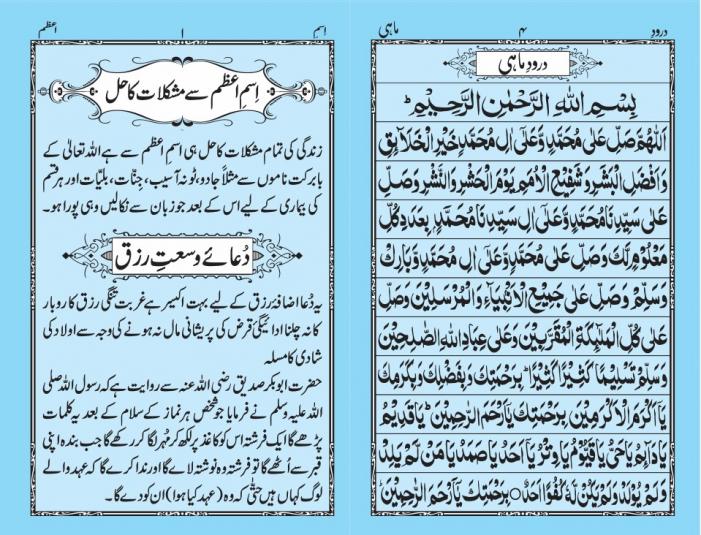 درود ۴ ماہی
درودِ ماہی
بِسْمِ اللهِ الرَّحْمٰنِ الرَّحِيْمِ ط
اَللّٰهُمَّ صَلِّ عَلٰى مُحَمَّدٍ وَّعَلٰٓى اٰلِ مُحَمَّدٍ خَيْرِ الْخَلَآئِقِ
وَاَفْضَلِ الْبَشَرِ وَشَفِيْعِ الْاُمَمِ يَوْمَ الْحَشْرِ وَالنَّشْرِ وَصَلِّ
عَلٰى سَيِّدِنَا مُحَمَّدٍ وَّعَلٰٓى اٰلِ سَيِّدِنَا مُحَمَّدٍ بِعَدَدِ كُلِّ
مَعْلُوْمٍ لَّكَ وَصَلِّ عَلٰى مُحَمَّدٍ وَّعَلٰٓى اٰلِ مُحَمَّدٍ وَّبَارِكْ
وَسَلِّمْ وَصَلِّ عَلٰى جَمِيْعِ الْاَنْۢبِيَآءِ وَالْمُرْسَلِيْنَ وَصَلِّ
عَلٰى كُلِّ الْمَلٰٓئِكَةِ الْمُقَرَّبِيْنَ وَعَلٰى عِبَادِ اللهِ الصّٰلِحِيْنَ
وَسَلِّمْ تَسْلِيْمًا كَثِيْرًا كَثِيْرًا ط بِرَحْمَتِكَ وَبِفَضْلِكَ وَبِكَرَمِكَ
يَآ اَكْرَمَ الْاَكْرَمِيْنَ بِرَحْمَتِكَ يَآ اَرْحَمَ الرّٰحِمِيْنَ ط يَا قَدِيْمُ
يَا دَآئِمُ يَا حَيُّ يَا قَيُّوْمُ يَا وِتْرُ يَآ اَحَدُ يَا صَمَدُ يَا مَنْ لَّمْ يَلِدْ
وَلَمْ يُوْلَدْ وَلَمْ يَكُنْ لَّهٗ كُفُوًا اَحَدٌ ○ بِرَحْمَتِكَ يَآ اَرْحَمَ الرّٰحِمِيْنَ ط
اسمِ ۱ اعظم
اِسمِ اعظم سے مشکلات کا حل
زندگی کی تمام مشکلات کا حل ہی اسمِ اعظم سے ہے اللہ تعالیٰ کے
بابرکت ناموں سے مثلاً جادو، ٹونہ آسیب، جنّات، بلیّات اور ہر قسم
کی بیماری کے لیے اس کے بعد جو زبان سے نکالیں وہی پورا ہو۔
دُعائے وسعتِ رزق
یہ دُعا اضافۂ رزق کے لیے بہت اکسیر ہے غربت تنگی رزق کاروبار
کا نہ چلنا ادائیگیٔ قرض کی پریشانی مال نہ ہونے کی وجہ سے اولاد کی
شادی کا مسلہ
حضرت ابوبکر صدیق رضی اللہ عنہ سے روایت ہے کہ رسول اللہ صلی
اللہ علیہ وسلم نے فرمایا جو شخص ہر نماز کے سلام کے بعد یہ کلمات
پڑھے گا ایک فرشتہ اس کو کاغذ پر لکھ کر مُہر لگا کر رکھے گا جب بندہ اپنی
قبر سے اُٹھے گا تو فرشتہ وہ نوشتہ لائے گا اور ندا کرے گا کہ عہد والے
لوگ کہاں ہیں حتیٰ کہ وہ (عہد کیا ہوا) ان کو دے گا۔